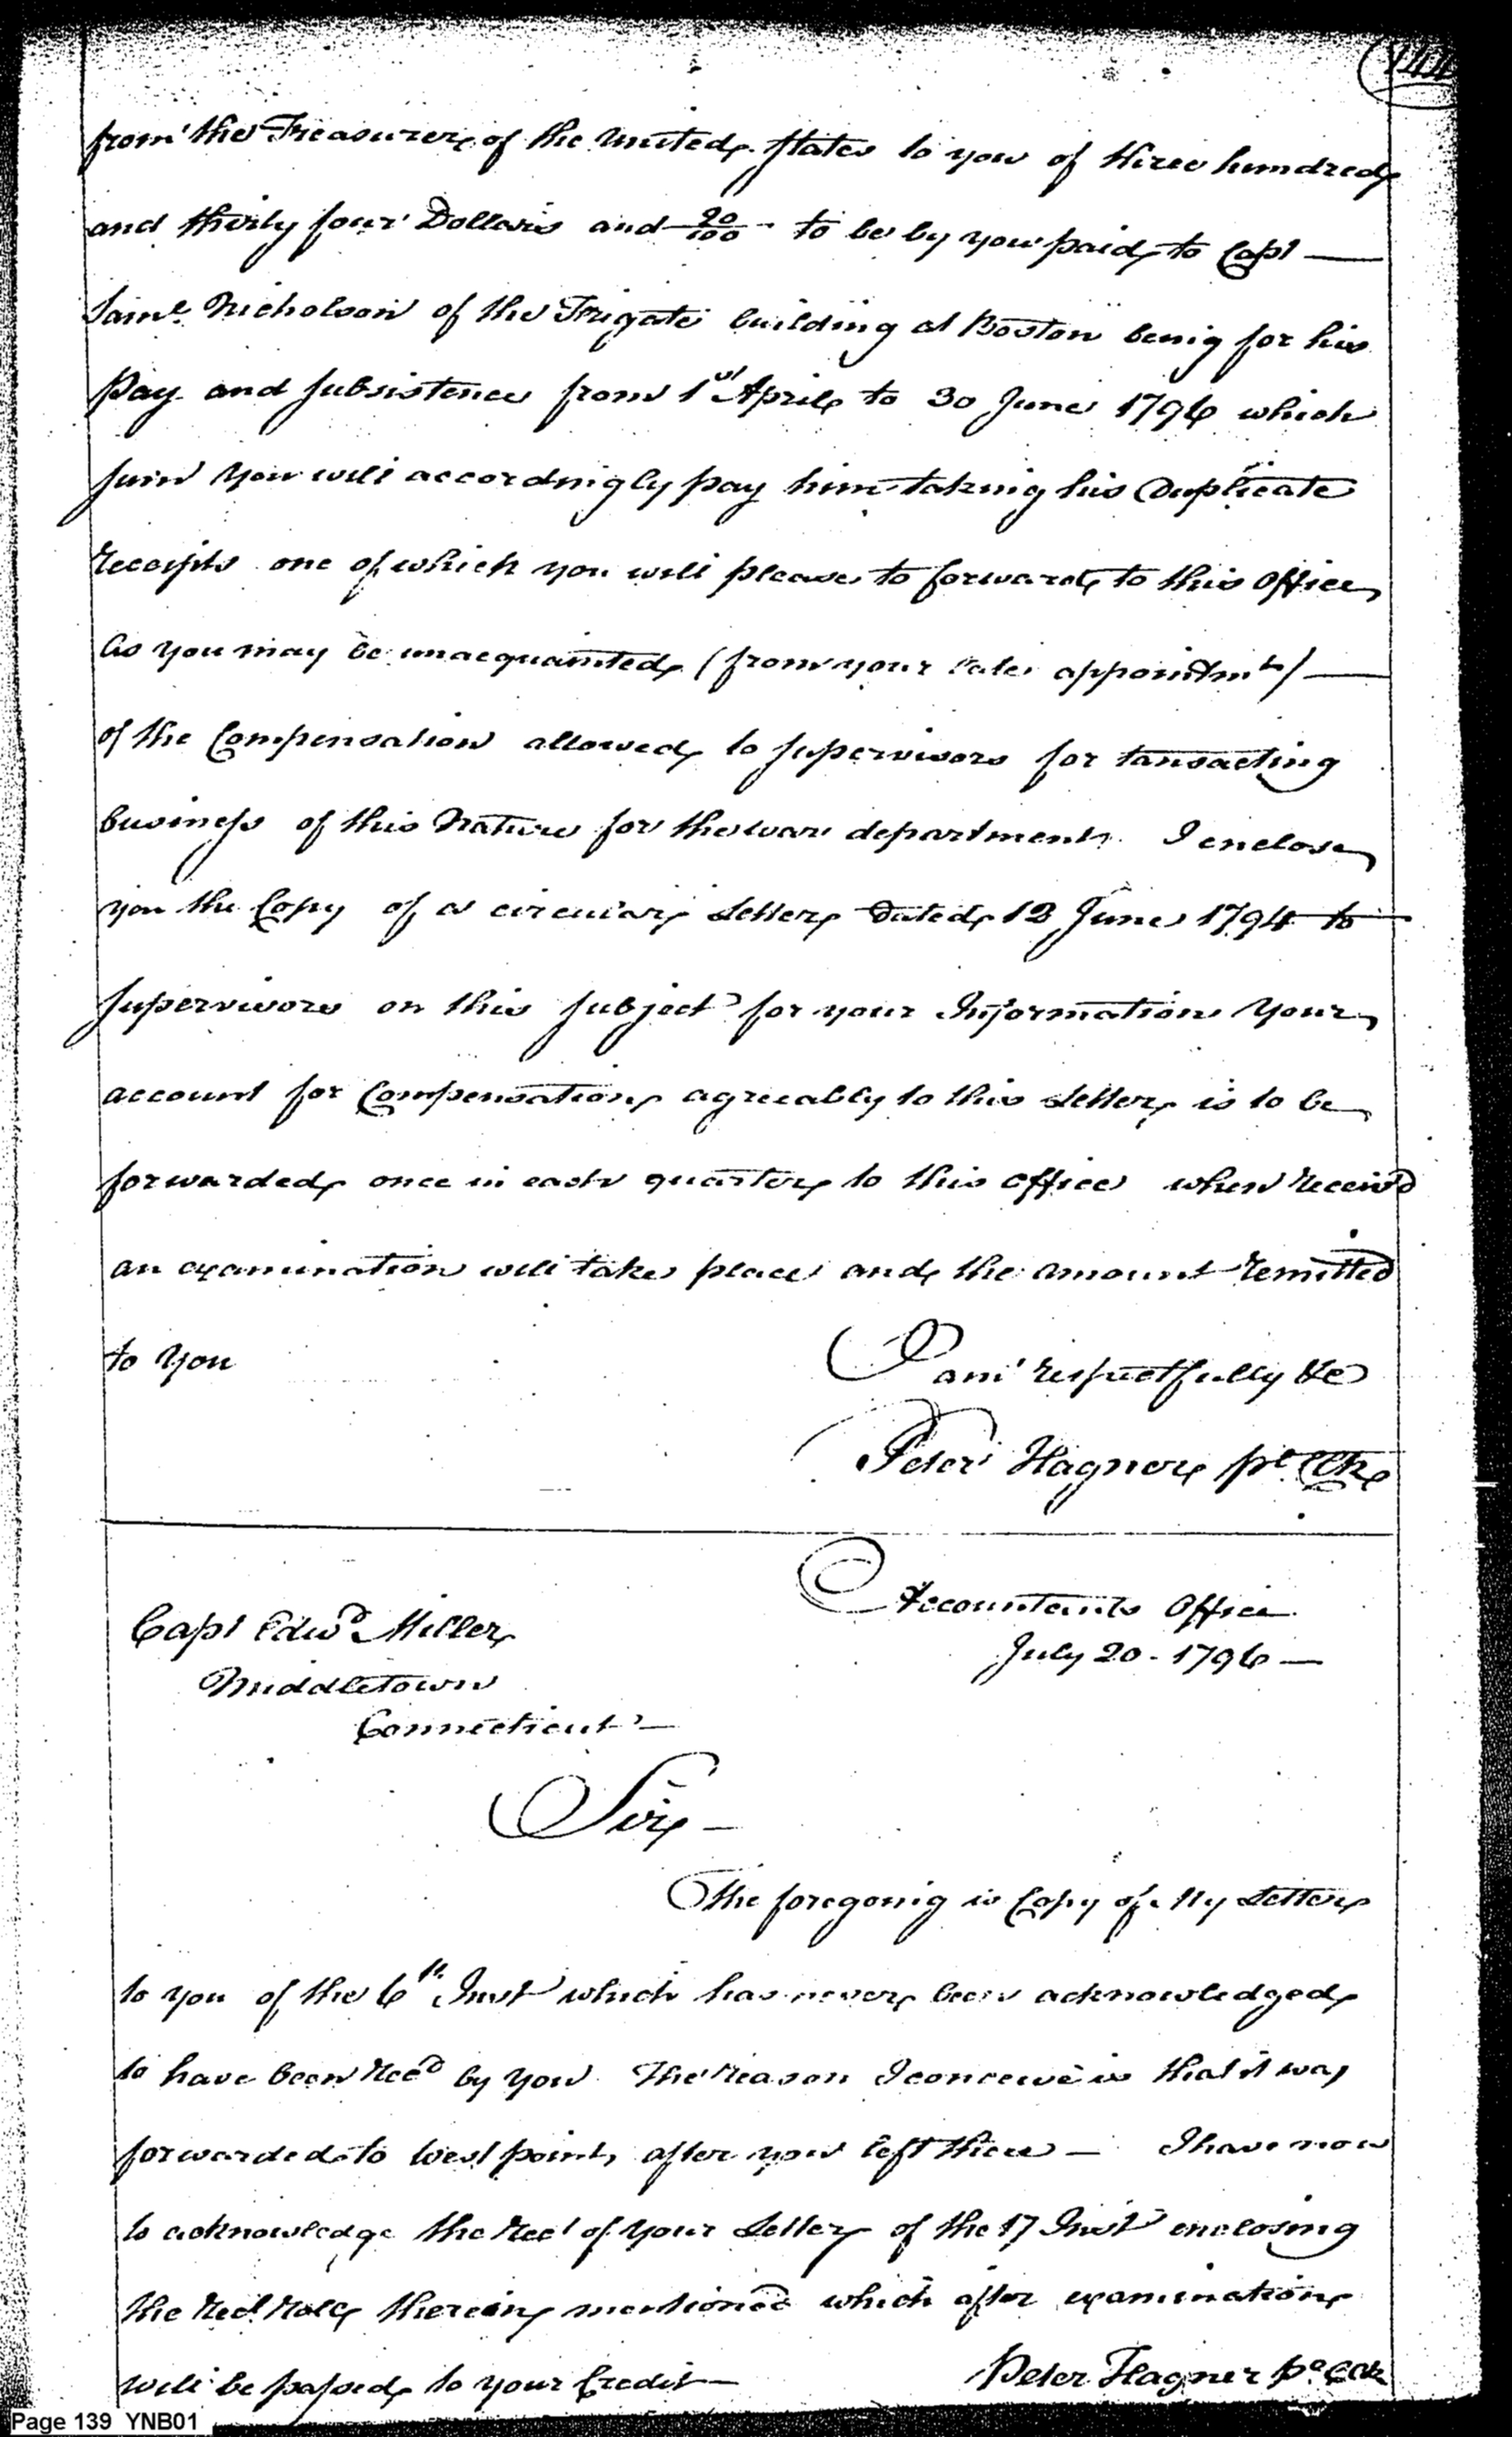 144
from the Treasurer of the United States to you of three hundred
and thirty four Dollars and 20/100 to be by you paid to Capt
Saml Nicholson of the Frigate building at Boston being for his
Pay and Subsistence from 1st April to 30 June 1796 which
Sum you will accordingly pay him taking his Duplicate
receipts one of which you will please to forward to this office
As you may be unacquainted (from your late appointmt)
of the Compensation allowed to Supervisors for tansacting
business of this Nature for the war department. I enclose
you the Copy of a circular Letter Dated 12 June 1794 to
Supervisors on this Subject for your Information Your
account for Compensation agreeably to this Letter is to be
forwarded once in each quarter to this office when receivd
an examination will take place and the amount remitted
to you
I am respectfully &c
Peter Hagner pl Clk
Accountants Office
July 20 - 1796 —
Capt Edwd Miller
Middletown
Connecticut —
Sir —
The foregoing is Copy of My Letter
to you of the 6th Inst which has never been acknowledged
to have been Recd by you The reason I conceive is that it was
forwarded to West point, after you left there — I have now
to acknowledge the rect of your Letter of the 17 Inst enclosing
the rect rolls therein mentioned which after examination
will be passed to your Credit —
Peter Hagner pl Clk
Page 139 YNB01